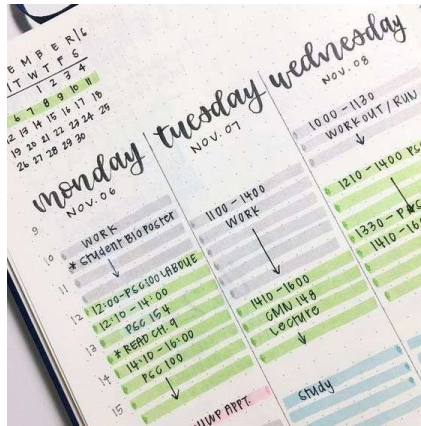 EMBER/6
T W T F S
1 2 3 4
6 7 8 9 10 11
12 13 14 15 16 17 18
19 20 21 22 23 24 25
26 27 28 29 30
monday
NOV. 06
9
10
11
12
13
14
15
WORK
* Student Bio Poster
12:00-PSC 100 LAB DUE
12:10-14:00
PSC 154
* READ CH. 9
14:10-16:00
PSC 100
tuesday
NOV. 07
1100-1400
WORK
1410-1600
CMN 148
Lecture
APPT.
wednesday
NOV. 08
1000-1130
WORK OUT / RUN
1210-1400
1330-
Study